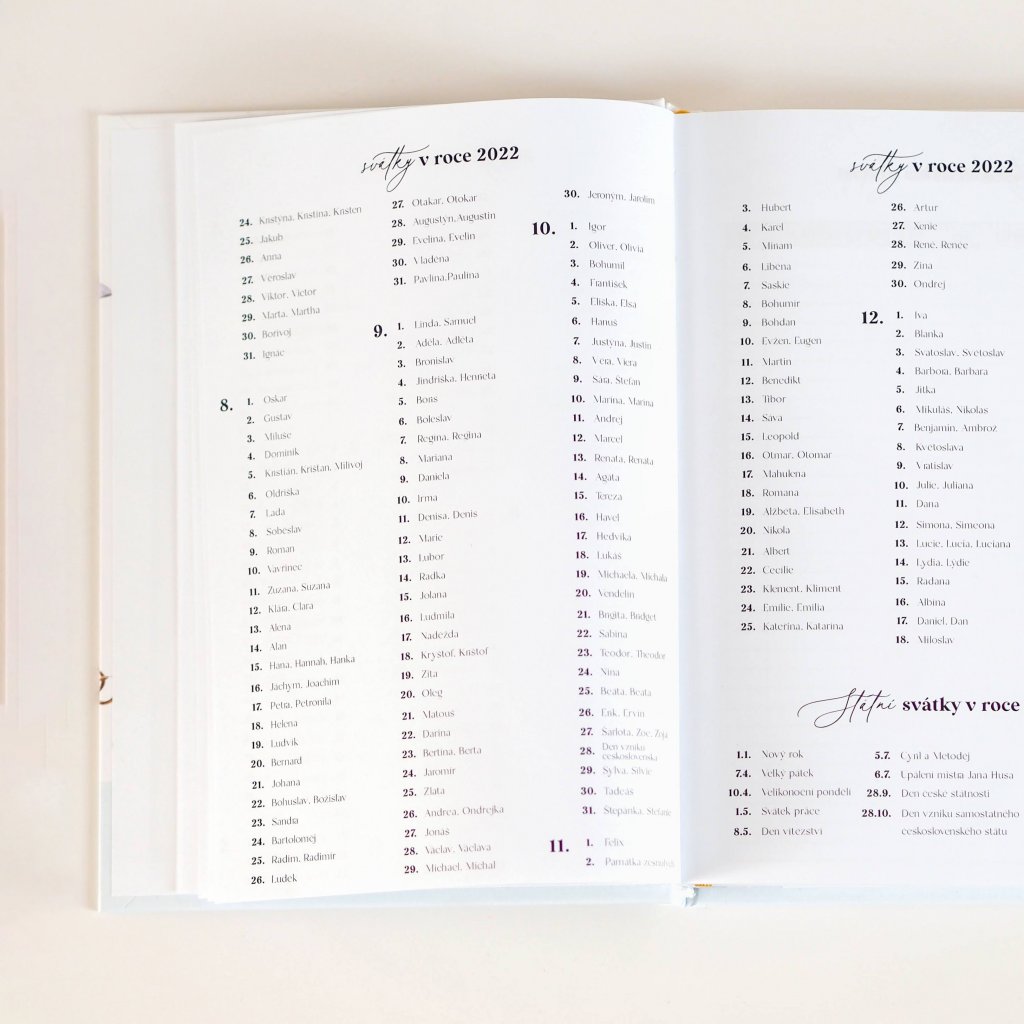 svátky v roce 2022
24. Kristýna, Kristina, Kristen
25. Jakub
26. Anna
27. Věroslav
28. Viktor, Victor
29. Marta, Martha
30. Bořivoj
31. Ignác
8. 1. Oskar
2. Gustav
3. Miluše
4. Dominik
5. Kristián, Křišťan, Milivoj
6. Oldřiška
7. Lada
8. Soběslav
9. Roman
10. Vavřinec
11. Zuzana, Suzana
12. Klára, Clara
13. Alena
14. Alan
15. Hana, Hannah, Hanka
16. Jáchym, Joachim
17. Petra, Petronila
18. Helena
19. Ludvík
20. Bernard
21. Johana
22. Bohuslav, Božislav
23. Sandra
24. Bartoloměj
25. Radim, Radimír
26. Luděk
27. Otakar, Otokar
28. Augustýn, Augustin
29. Evelína, Evelin
30. Vladěna
31. Pavlína, Paulína
9. 1. Linda, Samuel
2. Adéla, Adléta
3. Bronislav
4. Jindřiška, Henrieta
5. Boris
6. Boleslav
7. Regína, Regina
8. Mariana
9. Daniela
10. Irma
11. Denisa, Denis
12. Marie
13. Lubor
14. Radka
15. Jolana
16. Ludmila
17. Naděžda
18. Kryštof, Krištof
19. Zita
20. Oleg
21. Matouš
22. Darina
23. Bertina, Berta
24. Jaromír
25. Zlata
26. Andrea, Ondřejka
27. Jonáš
28. Václav, Václava
29. Michael, Michal
30. Jeroným, Jarolím
10. 1. Igor
2. Oliver, Olivia
3. Bohumil
4. František
5. Eliška, Elsa
6. Hanuš
7. Justýna, Justin
8. Věra, Viera
9. Sára, Štefan
10. Marina, Marína
11. Andrej
12. Marcel
13. Renáta, Renata
14. Agáta
15. Tereza
16. Havel
17. Hedvika
18. Lukáš
19. Michaela, Michala
20. Vendelín
21. Brigita, Bridget
22. Sabina
23. Teodor, Theodor
24. Nina
25. Beáta, Beata
26. Erik, Ervin
27. Šarlota, Zoe, Zoja
28. Den vzniku
československa
29. Sylva, Silvie
30. Tadeáš
31. Štěpánka, Stefanie
11. 1. Felix
2. Památka zesnulých
svátky v roce 2022
3. Hubert
4. Karel
5. Miriam
6. Liběna
7. Saskie
8. Bohumír
9. Bohdan
10. Evžen, Eugen
11. Martin
12. Benedikt
13. Tibor
14. Sáva
15. Leopold
16. Otmar, Otomar
17. Mahulena
18. Romana
19. Alžběta, Elisabeth
20. Nikola
21. Albert
22. Cecílie
23. Klement, Kliment
24. Emílie, Emilia
25. Kateřina, Katarina
26. Artur
27. Xenie
28. René, Renée
29. Zina
30. Ondřej
12. 1. Iva
2. Blanka
3. Svatoslav, Světoslav
4. Barbora, Barbara
5. Jitka
6. Mikuláš, Nikolas
7. Benjamín, Ambrož
8. Květoslava
9. Vratislav
10. Julie, Juliana
11. Dana
12. Simona, Simeona
13. Lucie, Lucia, Luciana
14. Lýdia, Lýdie
15. Radana
16. Albína
17. Daniel, Dan
18. Miloslav
Státní svátky v roce
1.1. Nový rok
7.4. Velký pátek
10.4. Velikonoční pondělí
1.5. Svátek práce
8.5. Den vítězství
5.7. Cyril a Metoděj
6.7. Upálení mistra Jana Husa
28.9. Den české státnosti
28.10. Den vzniku samostatného
československého státu